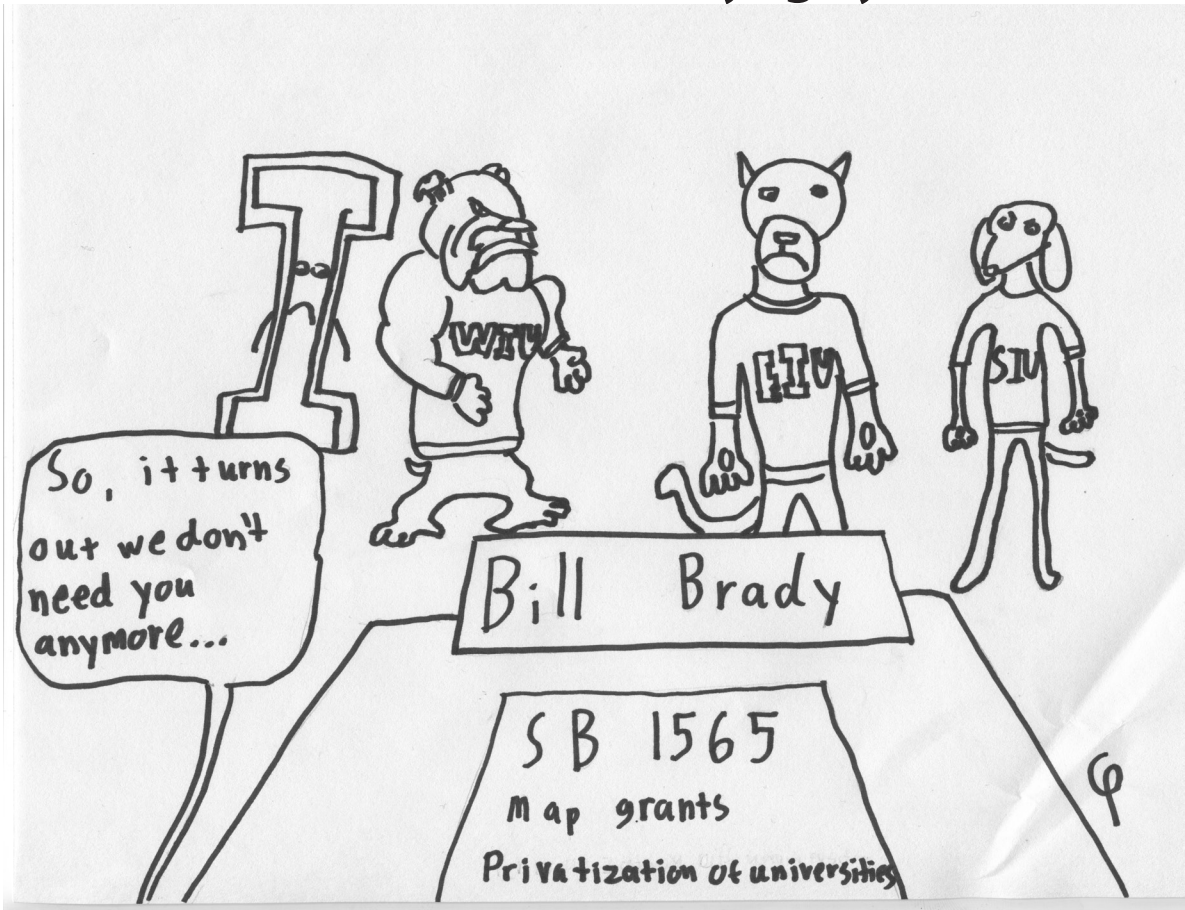 WIU
EIU
SIU
So, it turns
out we don't
need you
anymore...
Bill Brady
SB 1565
Map grants
Privatization of universities